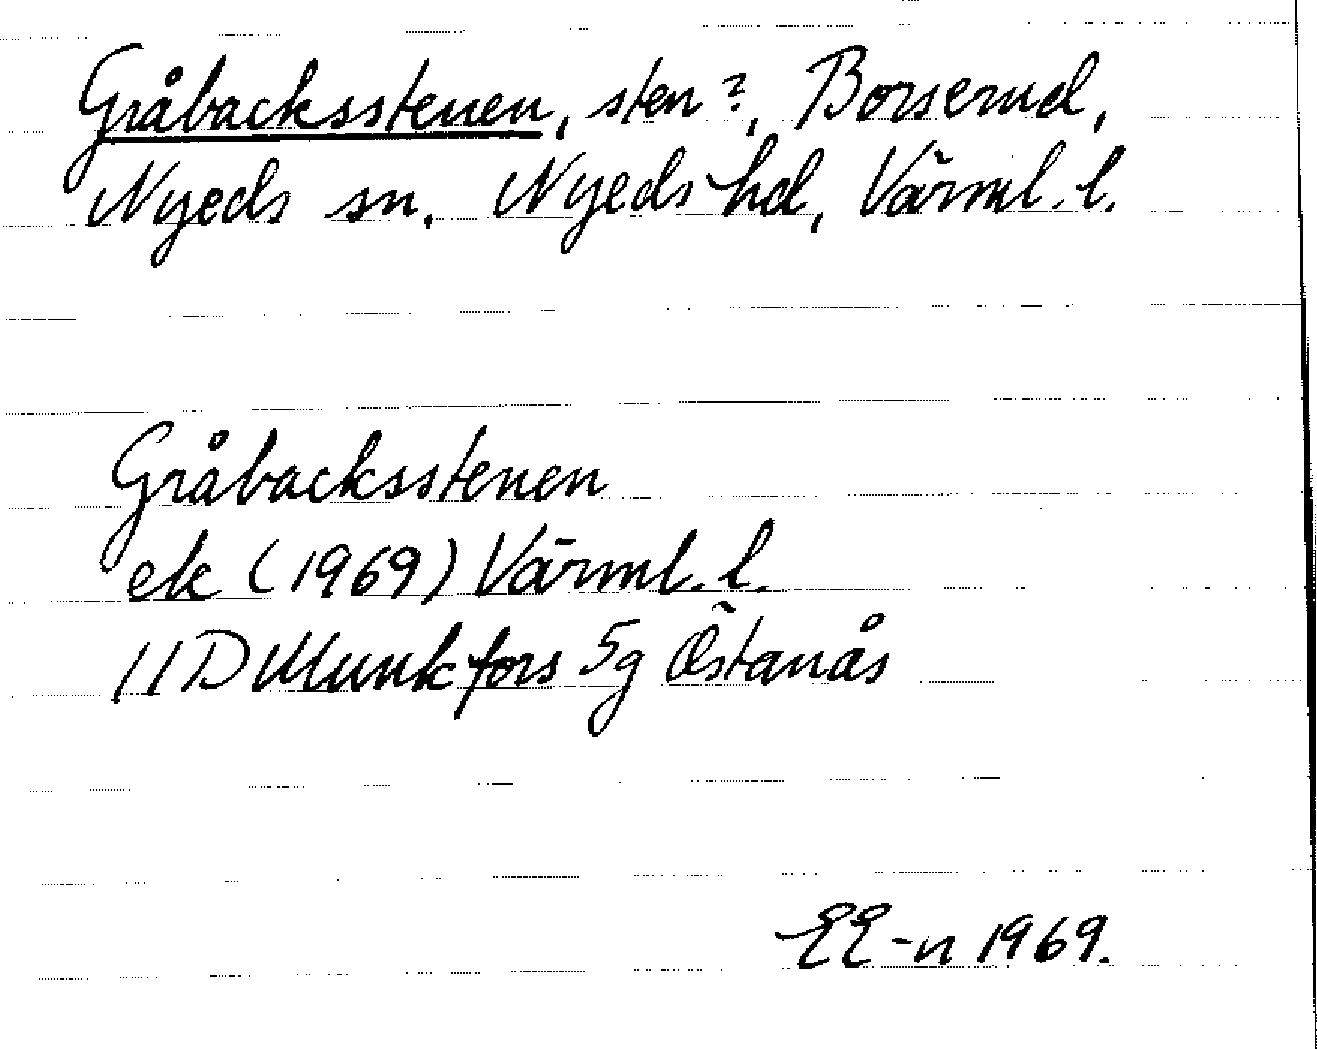 Gråbacksstenen, sten?, Borserud,
Nyeds sn. Nyeds hd, Värml. l.
Gråbacksstenen
ek (1969) Värml. l.
11D Munkfors 5g Östanås
EE-n 1969.